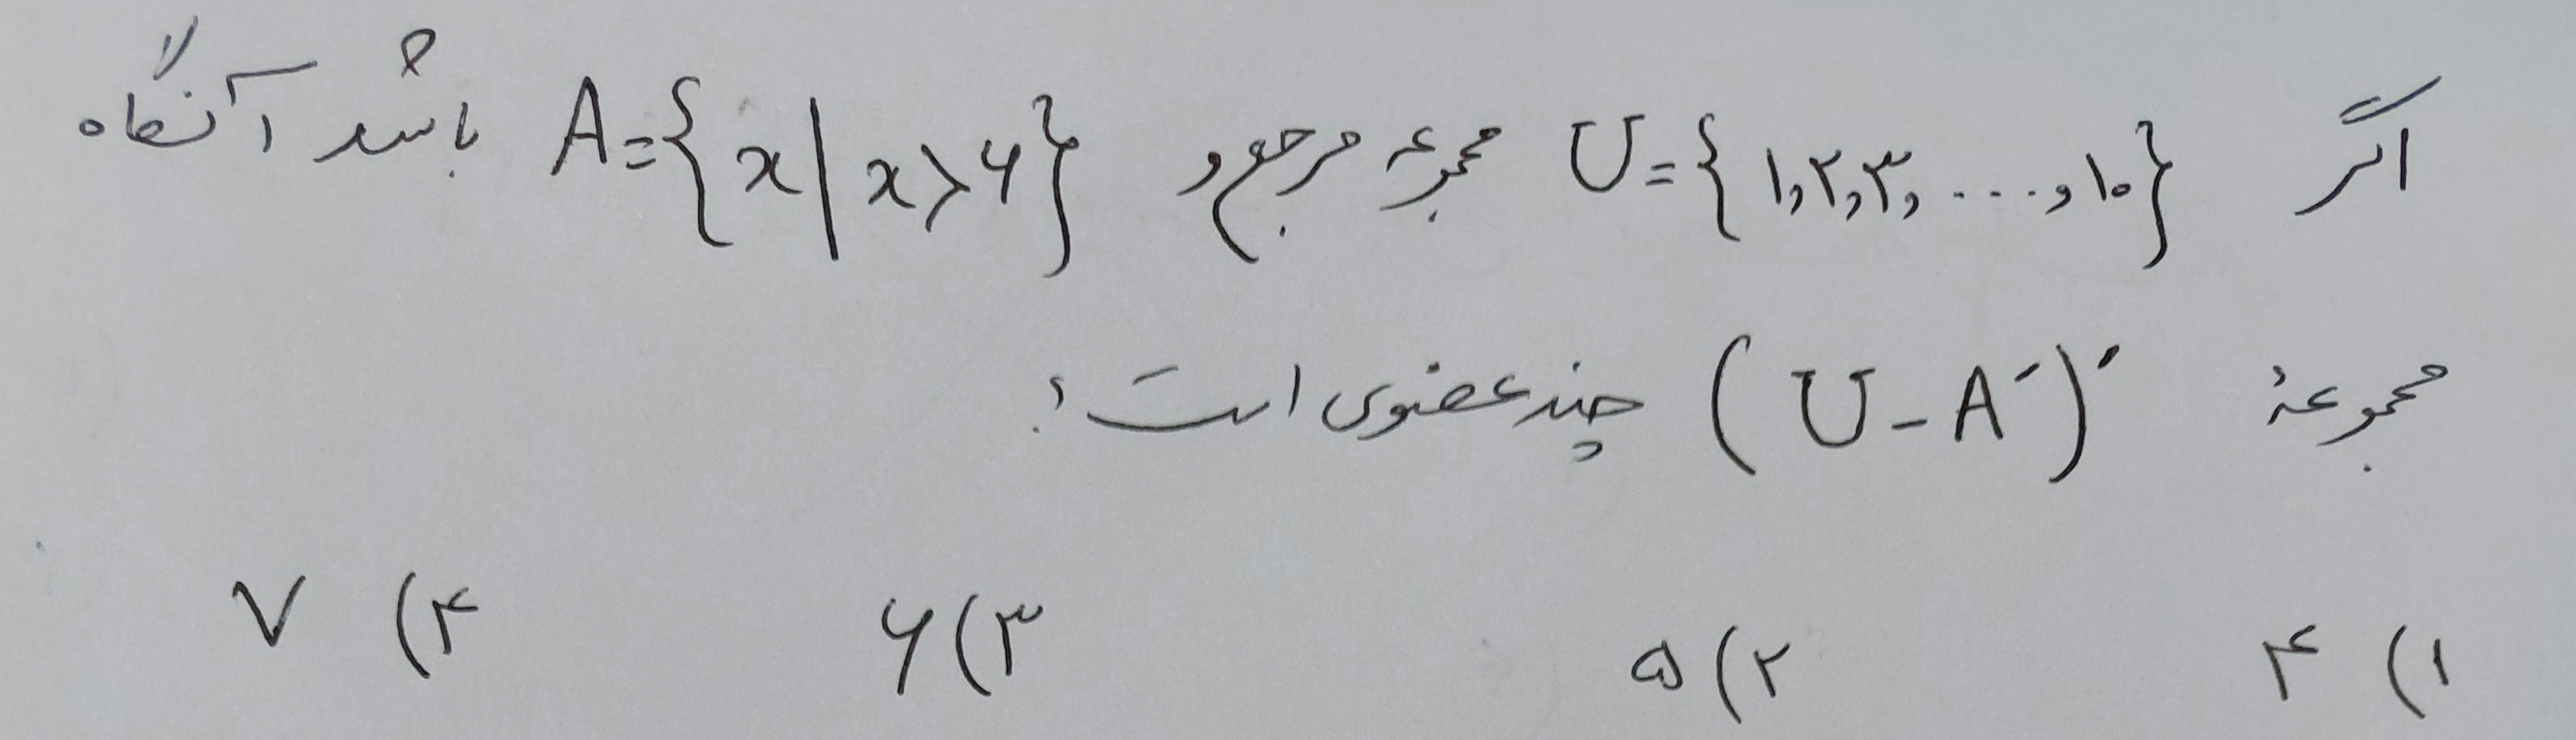 اگر U={۱,۲,۳,....,۱۰} مجموعه مرجع و A={x|x>۶} باشد آنگاه
مجموعهٔ (U-A′)′ چند عضوی است؟
۱) ۴ ۲) ۵ ۳) ۶ ۴) ۷